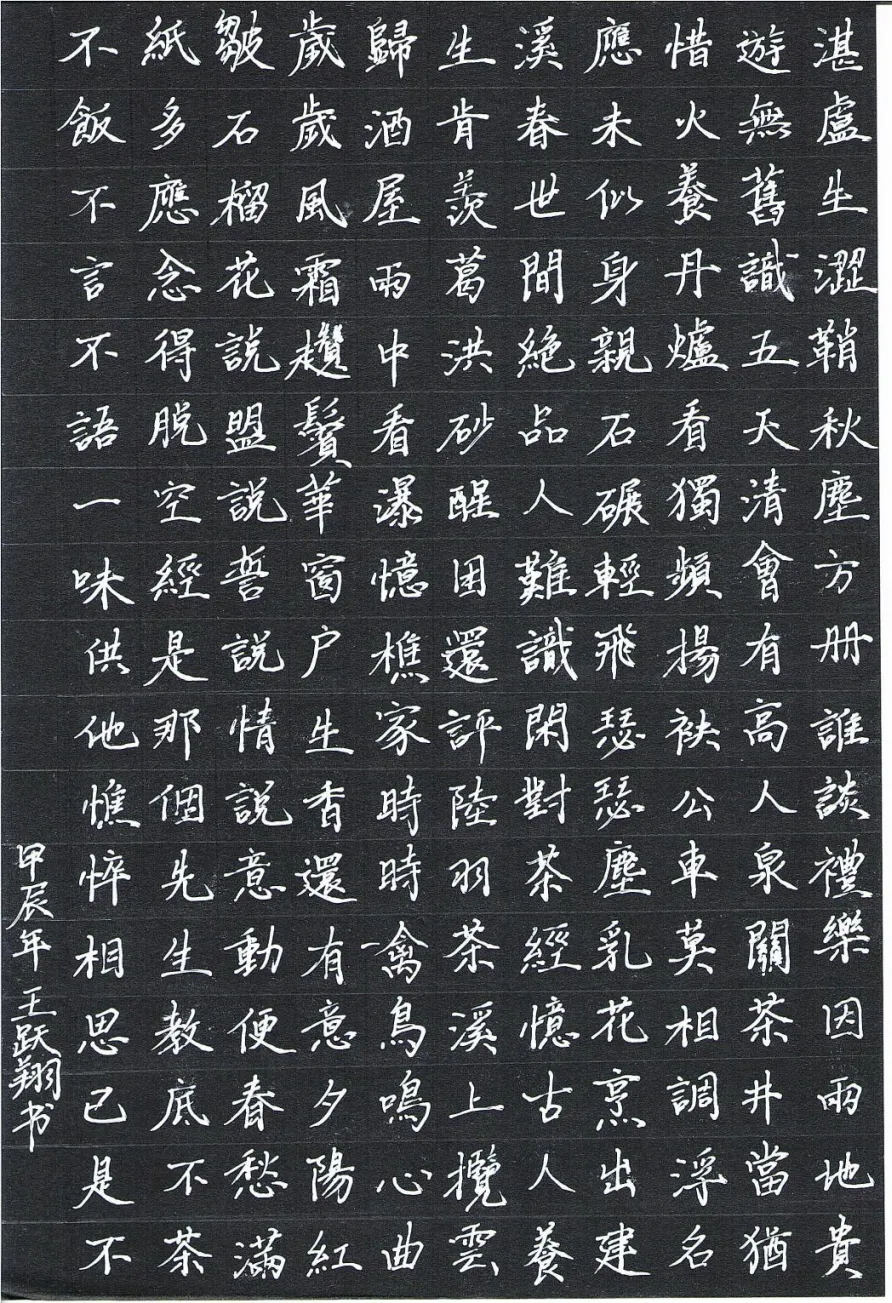 湛盧生澀鞘秋塵方册誰談禮樂因雨地貴
遊無舊識五天清會有高人泉關茶井當猶
惜火養丹爐看獨頻揚袂公車莫相調浮名
應未似身親石碾輕飛瑟瑟塵乳花烹出建
溪春世間絕品人難識閑對茶經憶古人養
生肯羨葛洪砂醒困還評陸羽茶溪上攬雲
歸酒屋雨中看瀑憶樵家時時禽鳥鳴心曲
歲歲風霜趲鬢華窗户生香還有意夕陽紅
皺石榴花說盟說誓說情說意動便春愁滿
紙多應念得脱空經是那個先生教底不茶
不飯不言不語一味供他憔悴相思已是不
甲辰年王跃翔书